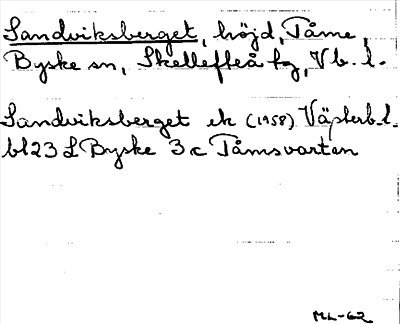 Sandviksberget, höjd, Tåme,
Byske sn, Skellefteå kg, Vb. l.
Sandviksberget ek (1958) Västerb. l.
bl 23 L Byske 3 c Tåmsvarten
ML-62